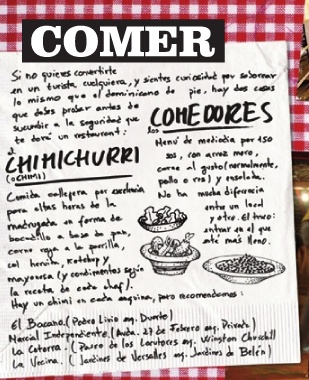 COMER
Si no quieres convertirte
en un turista cualquiera, y sientes curiosidad por saborear
lo mismo que el dominicano de pie, hay dos cosas
que debes probar antes de
sucumbir a la seguridad que
te dará un restaurant:
el
CHIMICHURRI
(o CHIMI)
Comida callejera por excelencia
para altas horas de la
madrugada en forma de
bocadillo a base de pan,
carne roja a la parrilla,
col hervida, Ketchup y
mayonesa (y condimentos según
la receta de cada chef).
Hay un chimi en cada esquina, pero recomendamos:
los
COMEDORES
Menú de mediodía por 150
sos, con arroz moro,
carne al gusto (normalmente,
pollo o res) y ensalada.
No ha mucha diferencia
entre un local
y otro. El truco:
entrar en el que
esté más lleno.
El Bacano. (Pedro Livio esq. Duarte)
Marcial Independiente. (Avda. 27 de Febrero esq. Privada)
La Cotorra. (Paseo de los Locutores esq. Winston Churchill)
La Vecina. (Jardines de Versalles esq. Jardines de Belén)